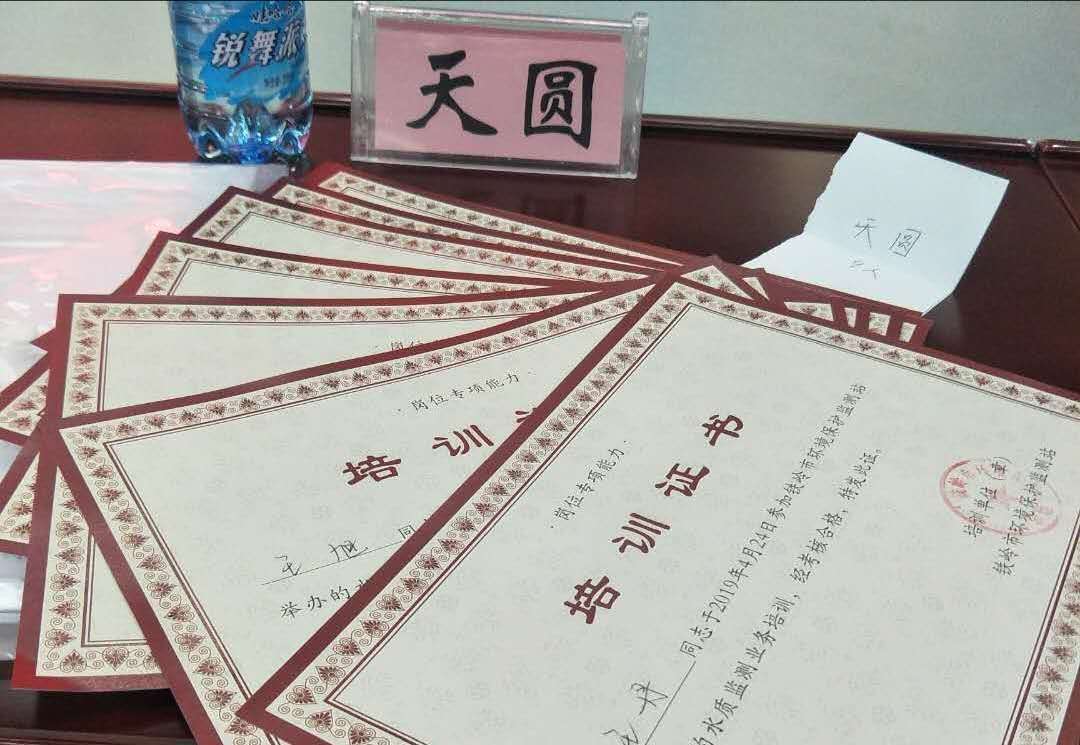 锐舞派
天圆
天圆
·岗位专项能力·
培训
王旭 同
举办的
·岗位专项能力·
培训证书
丹 同志于2019年4月24日参加铁岭市环境保护监测站
水质监测业务培训，经考核合格，特发此证。
培训单位（章）
铁岭市环境保护监测站